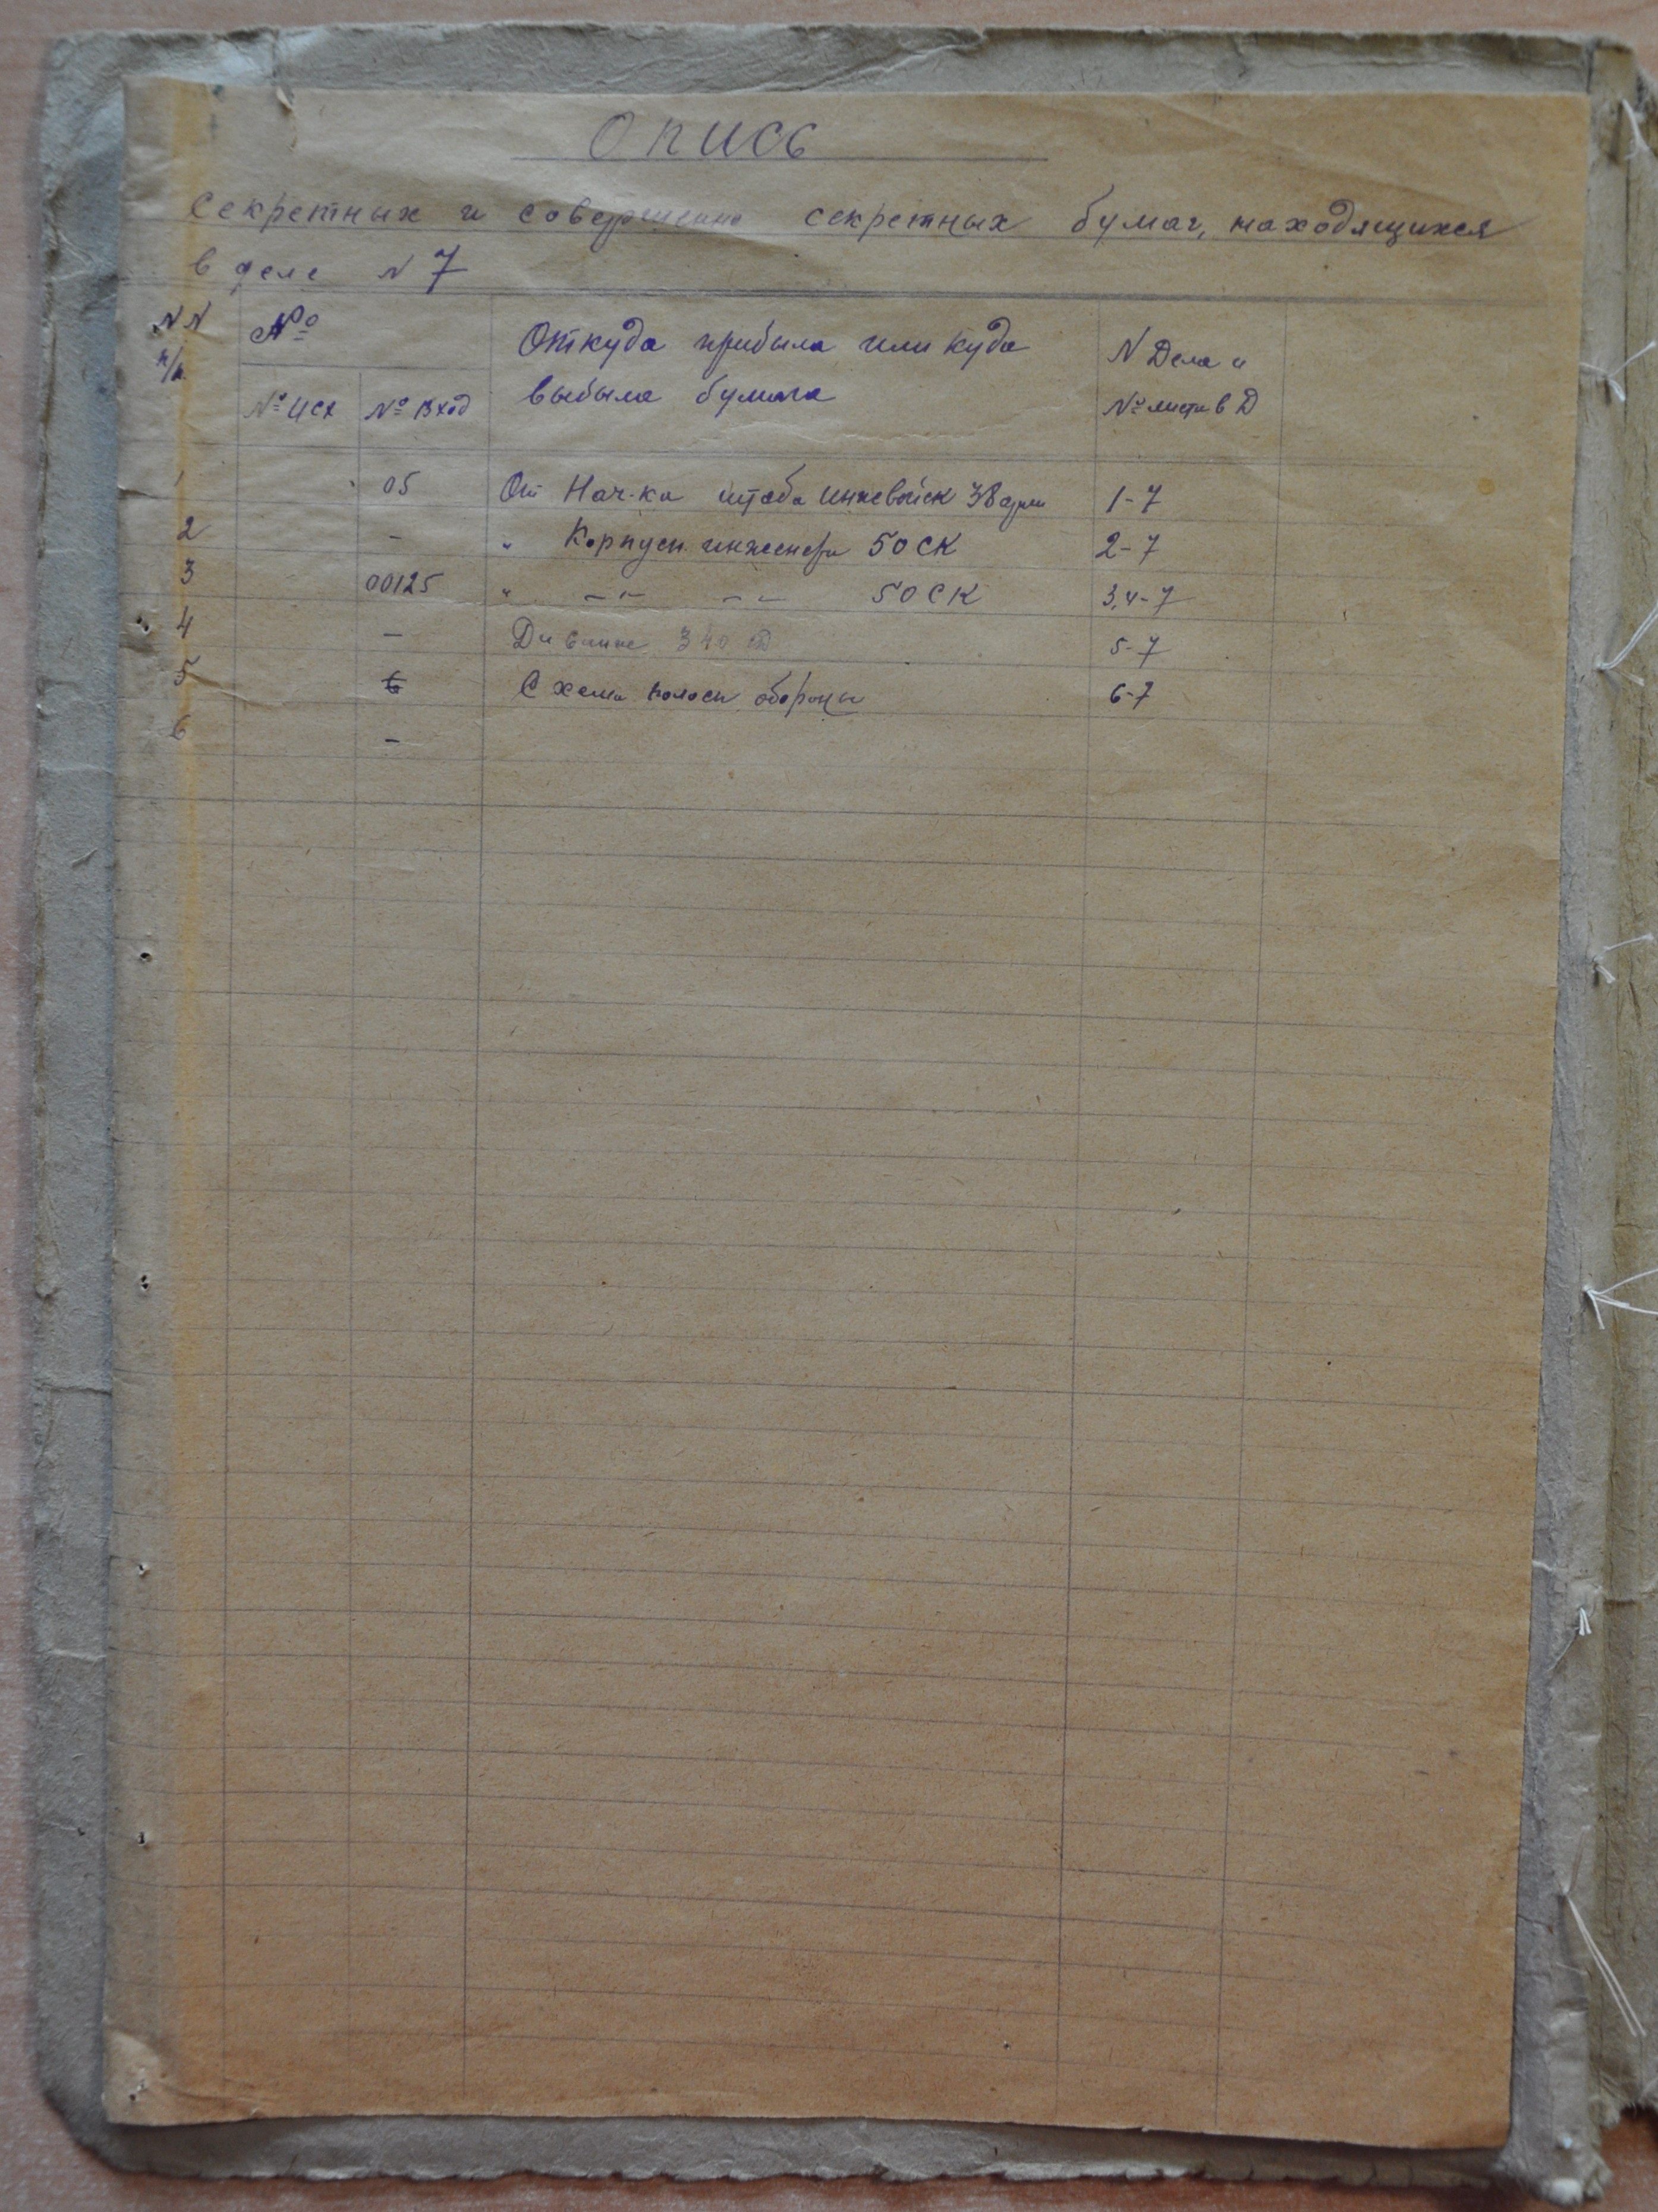 Опись
секретных и совершенно секретных бумаг, находящихся
в деле N 7
NN п/п № Откуда прибыла или куда выбыла бумага N Дела и № листа в Д
№ исх № вход
1 05 От Нач-ка штаба инжвойск 38 арм 1-7
2 - " Корпусн. инженера 50 СК 2-7
3 00125 " -"- -"- 50 СК 3,4-7
4 - 340 СД 5-7
5 6 Схема полосы обороны 6-7
6 -